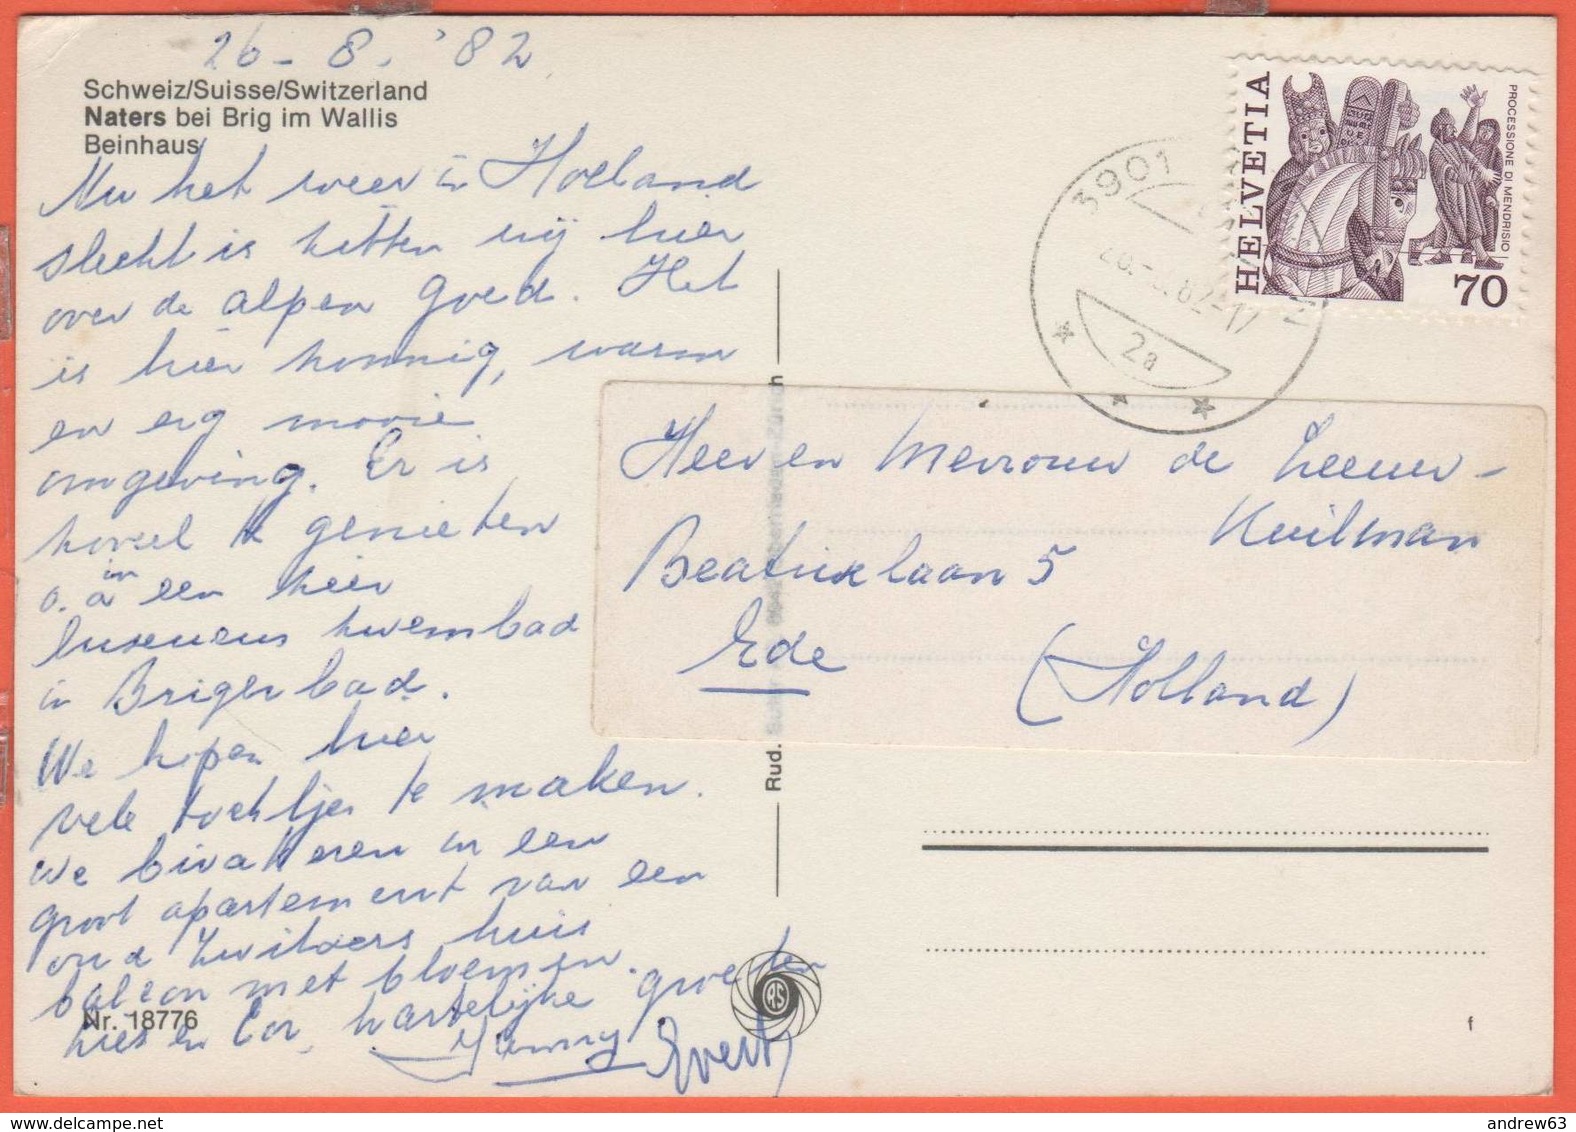 26-8.'82
Schweiz/Suisse/Switzerland
Naters bei Brig im Wallis
Beinhaus
Nu het weer in Holland
slecht is zitten wij hier
over de alpen goed. Het
is hier zonnig, warm
en erg mooie
omgeving. Er is
zoveel te genieten
o.a in een hier
luxeueus zwembad
in Brigerbad.
We hopen hier
vele tochtjes te maken.
We bivakeren in een
groot apartement van een
oud Zwitsers huis
balcon met bloemen.
Nr. 18776
Kies en Cor, hartelijke groeten
Janny Evert
HELVETIA
PROCESSIONE DI MENDRISIO
70
3901
26.8.82-17
2a
Heer en Mevrouw de Leeuw-
Kuilman
Beatrixlaan 5
Ede
(Holland)
Rud.
RS
f
andrew63